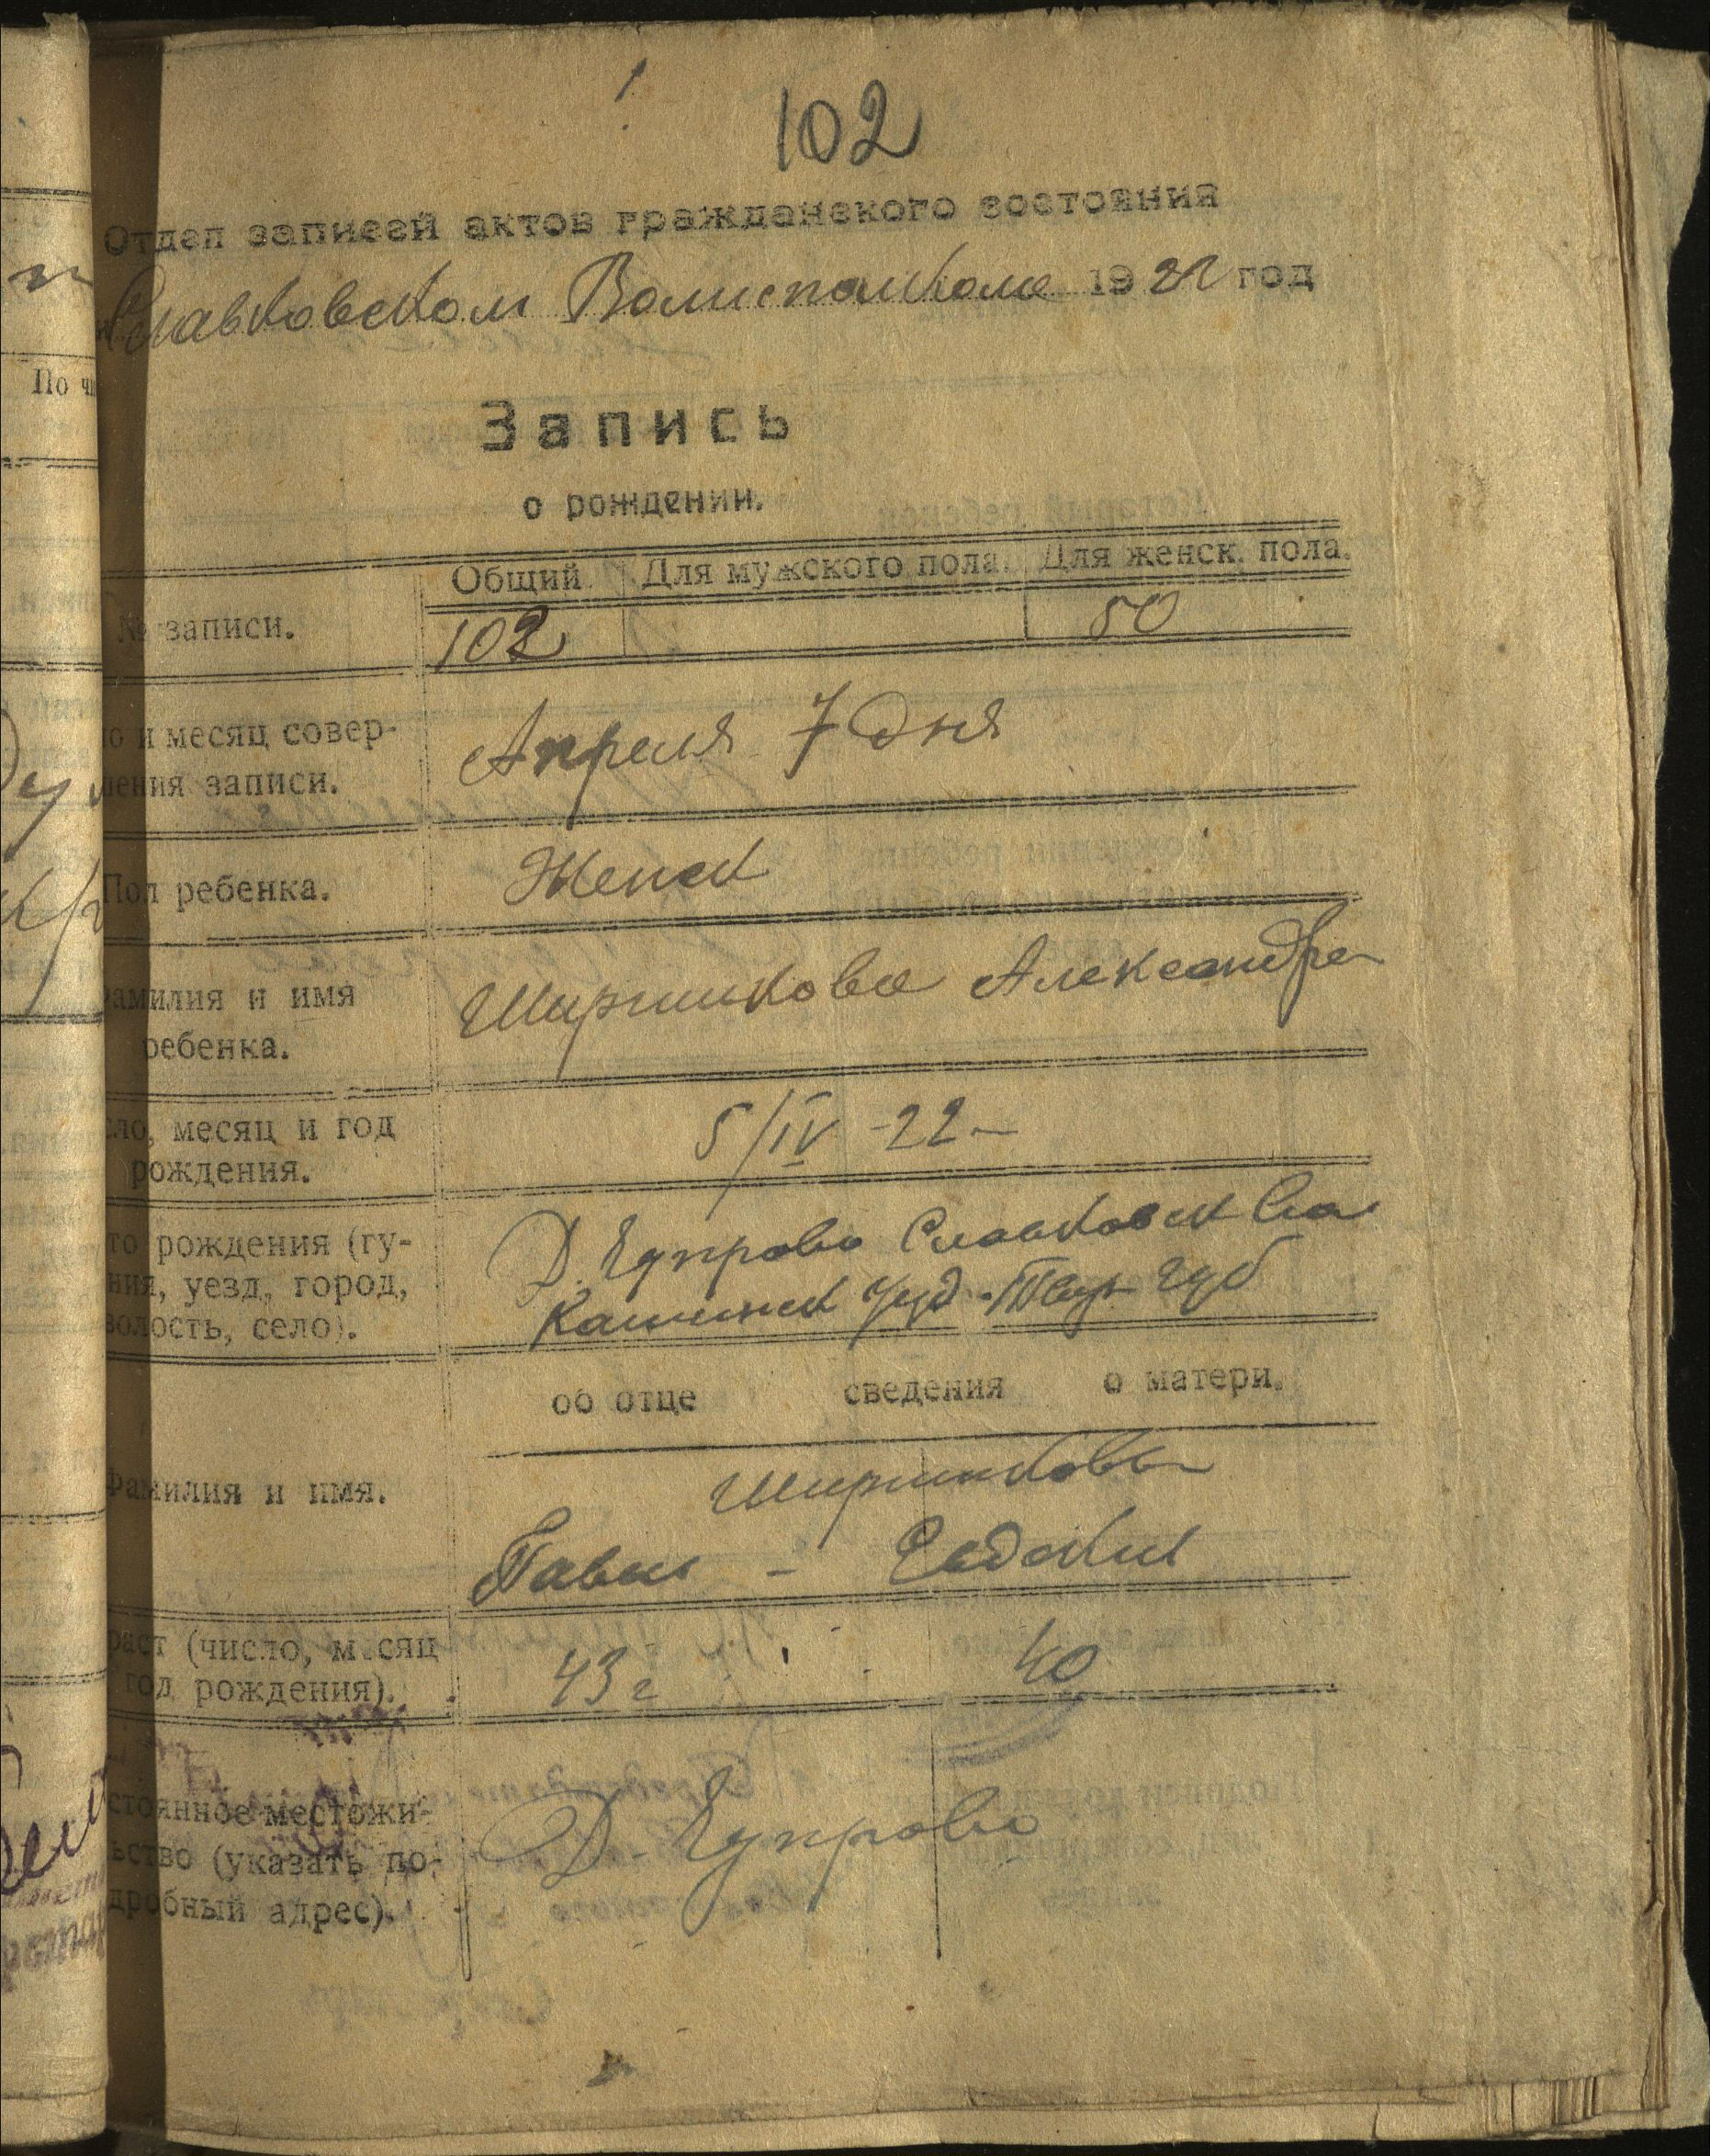 102
Отдел записей актов гражданского состояния
Славковском Волисполкоме 1922 год
Запись
о рождении.
Общий Для мужского пола. Для женск. пола.
№ записи.
102 50
о и месяц совер-
ления записи.
Апреля 7 дня
Пол ребенка.
Женск
амилия и имя
ребенка.
Ширшикова Александра
ло, месяц и год
рождения.
5/IV -22-
то рождения (гу-
ния, уезд, город,
волость, село).
Д. Славковск Вол
Кашинск уезд Твер губ
об отце сведения о матери.
Фамилия и имя.
Ширшиковы
Павел - Евдокия
раст (число, месяц
год рождения).
43 г 40
стоянное местожи-
ьство (указать по-
дробный адрес).
Д.